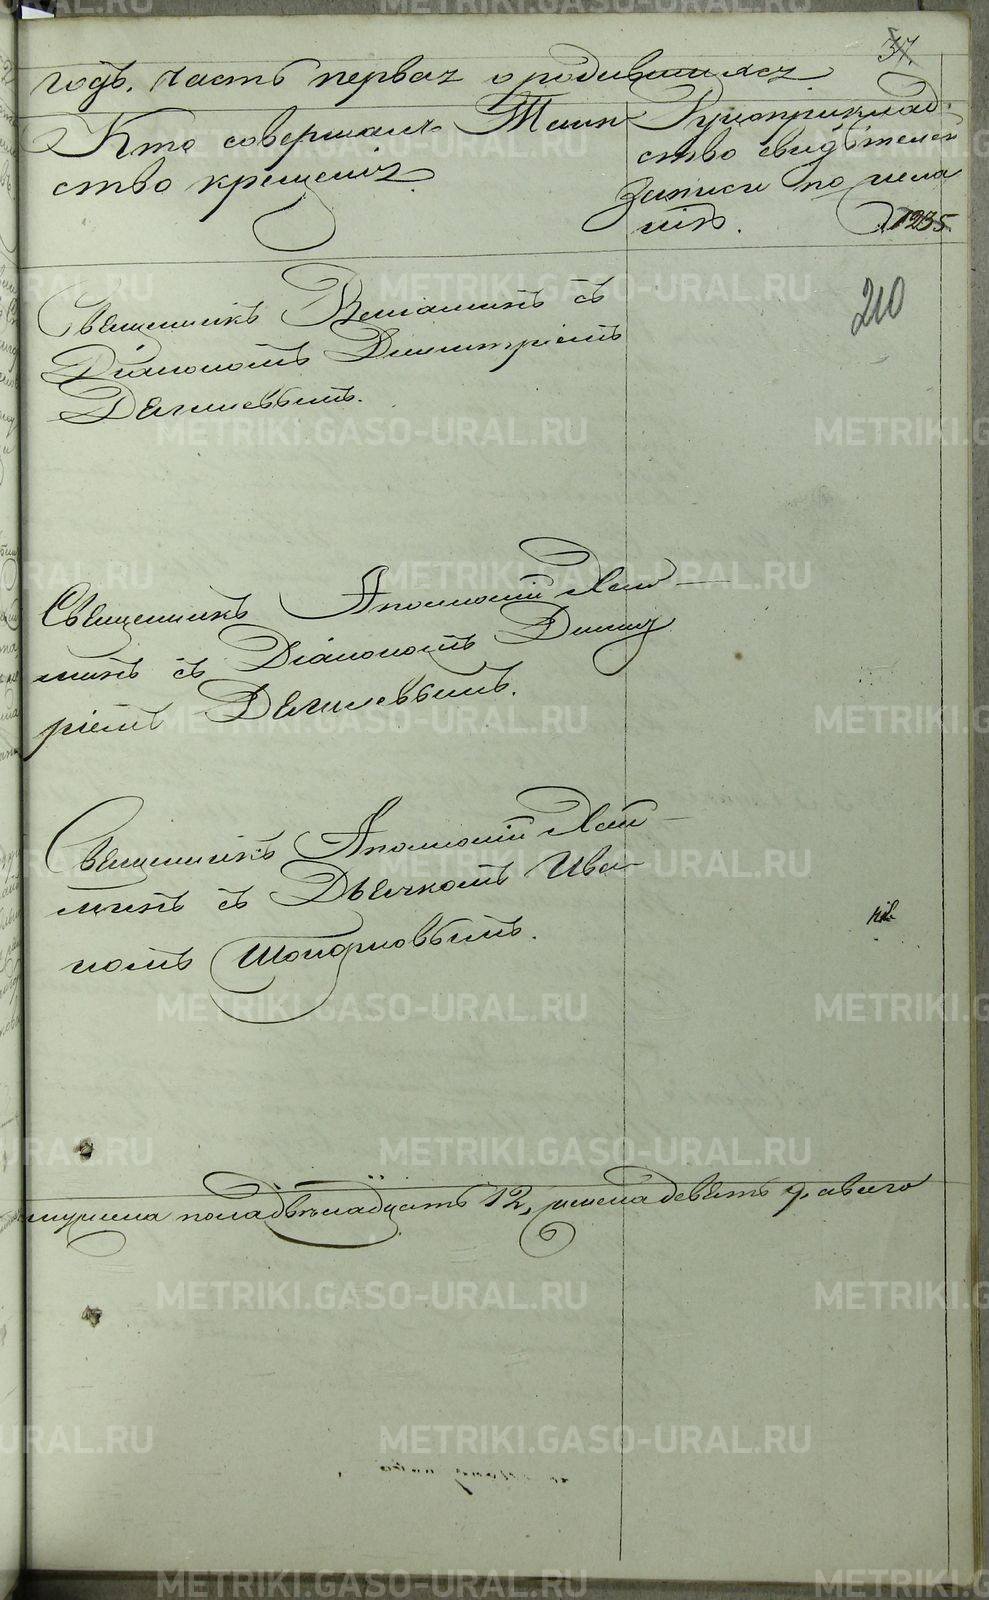 37.
годъ. часть первая о родившихся
Кто совершалъ Таин-
ство крещенія.
Рукоприклад-
ство свидѣтелей
записи по жела
нію.
1235
210
Священникъ Веніаминъ съ
Діакономъ Димитріемъ
Дягилевымъ.
Священникъ Аполлоній
съ Діакономъ Димит
ріемъ Дягилевымъ.
Священникъ Аполлоній
съ Дьячкомъ Ива-
номъ Топорковымъ.
пола двѣнадцать 12, женска девять 9, а всего
METRIKI.GASO-URAL.RU